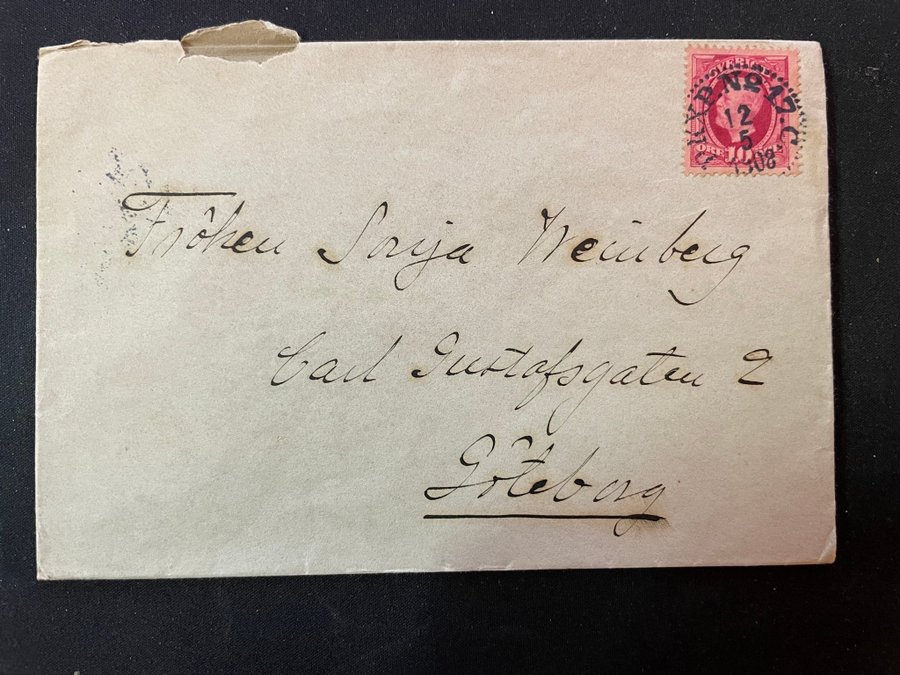 PKXP. No 17. C
12
5
1908
ÖRE 10
Fröken Sonja Weinberg
Carl Gustafsgatan 2
Göteborg